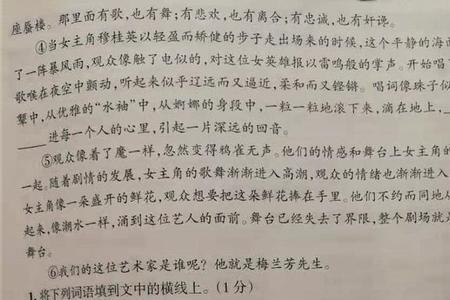 座蜃楼。那里面有歌，也有舞；有悲欢，也有离合；有忠诚，也有奸谗。
④当女主角穆桂英以轻盈而矫健的步子走出场来的时候，这个平静的海面
了一阵暴风雨，观众像触了电似的，对这位女英雄报以雷鸣般的掌声。开始唱了
歌喉在夜空中颤动，听起来似乎辽远而又逼近，柔和而又铿锵。唱词像珠子似
颦中，从优雅的“水袖”中，从婀娜的身段中，一粒一粒地滚下来，滴在地上，
进每一个人的心里，引起一片深远的回音。
⑤观众像着了魔一样，忽然变得鸦雀无声。他们的情感和舞台上女主角的
一起。随着剧情的发展，女主角的歌舞渐渐进入高潮，观众的情绪也渐渐进入
女主角像一朵盛开的鲜花，观众想要把这朵鲜花捧在手里。他们不约而同地从
起来，像潮水一样，涌到这位艺人的面前。舞台已经失去了界限，整个剧场就是
舞台。
⑥我们的这位艺术家是谁呢？他就是梅兰芳先生。
1.将下列词语填到文中的横线上。（1分）